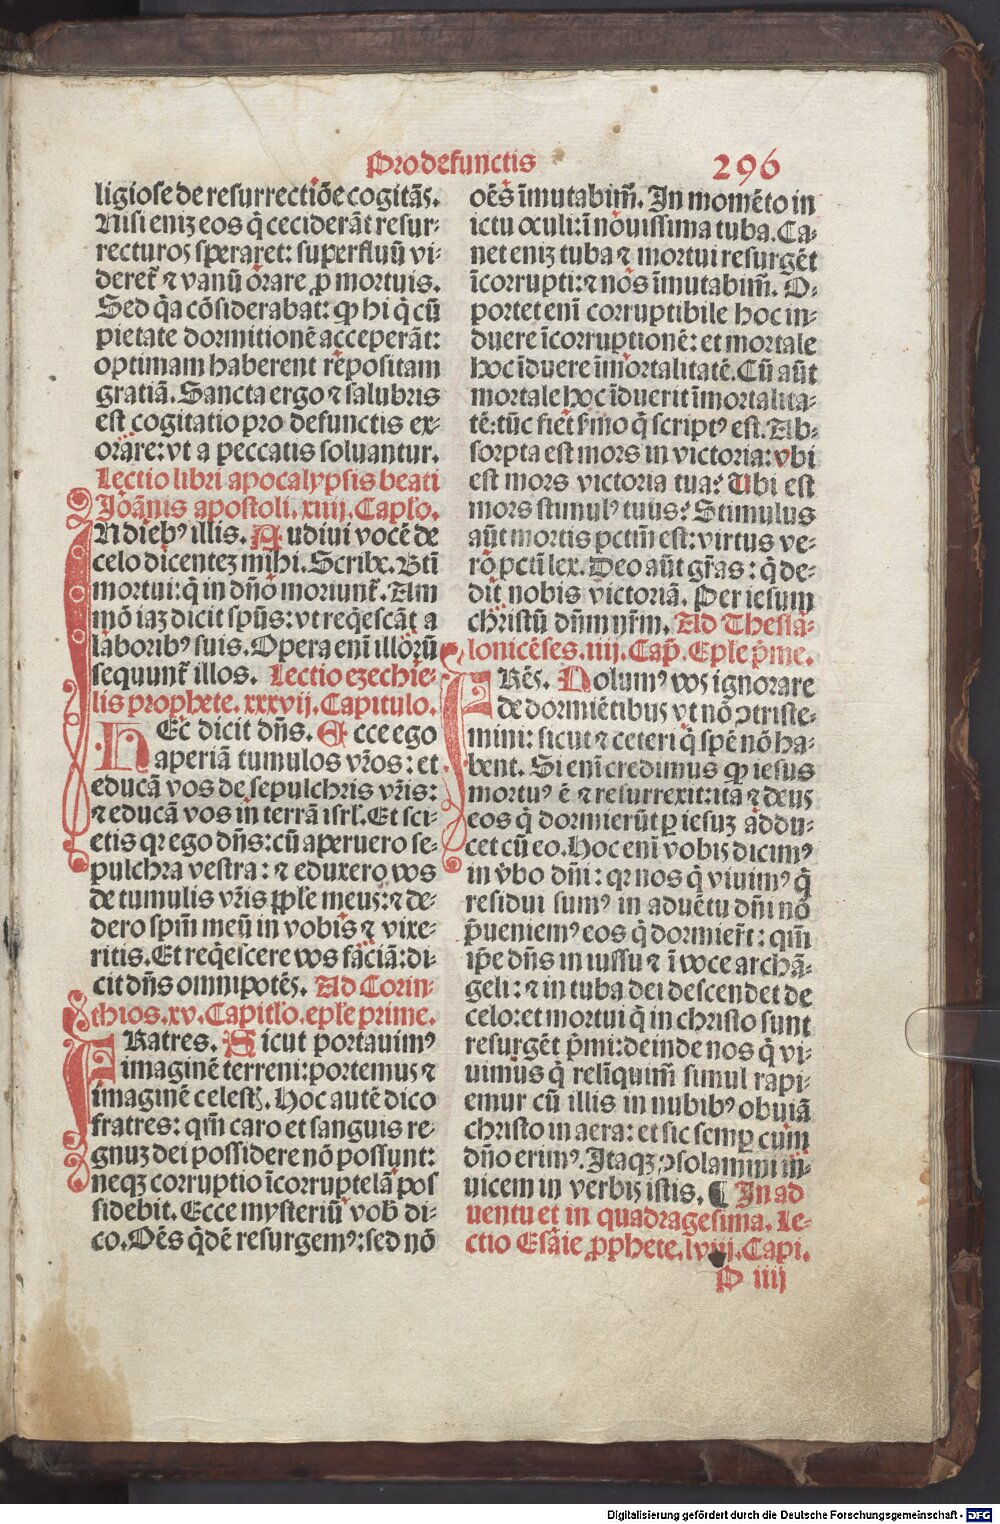 Pro defunctis
296
ligiose de resurrectiõe cogitãs.
Nisi eniz eos q̃ ceciderãt resur⸗
recturos speraret: superfluũ vi⸗
deret̃ ⁊ vanũ orare ꝓ mortuis.
Sed q̃a cõsiderabat: ꝙ hi q̃ cũ
pietate dormitionẽ acceperãt:
optimam haberent repositam
gratiã. Sancta ergo ⁊ salubris
est cogitatio pro defunctis ex⸗
orare: vt a peccatis soluantur.
Lectio libri apocalypsis beati
Joãnis apostoli. xiiij. Capło.
IN dieb⁹ illis. Audiui vocẽ de
celo dicentez mihi. Scribe. Btĩ
mortui: q̃ in dño moriunt̃. Am
mõ iaz dicit spũs: vt reqẽscãt a
laborib⁹ suis. Opera enĩ illorũ
sequunt̃ illos. Lectio ezechie⸗
lis prophete. xxxvij. Capitulo.
HEc dicit dñs. Ecce ego
aperiã tumulos vr̃os: et
educã vos de sepulchris vr̃is:
⁊ educã vos in terrã isrł. Et sci⸗
etis qꝛ ego dñs: cũ aperuero se⸗
pulchra vestra: ⁊ eduxero vos
de tumulis vr̃is pple meus: ⁊ de⸗
dero spm̃ meũ in vobis ⁊ vixe⸗
ritis. Et reqẽscere vos faciã: di⸗
cit dñs omnipotẽs. Ad Corin⸗
thios. xv. Capitło. epłe prime.
FRatres. Sicut portauim⁹
imaginẽ terreni: portemus ⁊
imaginẽ celest. Hoc autẽ dico
fratres: qm̃ caro et sanguis re⸗
gnuz dei possidere nõ possunt:
neqz corruptio ĩcorruptelã pos
sidebit. Ecce mysteriũ vob̃ di⸗
co. Oẽs q̃dẽ resurgem⁹: sed nõ
oẽs ĩmutabim̃. In momẽto in
ictu oculi: ĩ nouissima tuba. Ca⸗
net eniz tuba ⁊ mortui resurgẽt
ĩcorrupti: ⁊ nos ĩmutabim̃. O⸗
portet enĩ corruptibile hoc in⸗
duere ĩcorruptionẽ: et mortale
hoc ĩduere ĩmortalitatẽ. Cũ aũt
mortale hoc ĩduerit ĩmortalita⸗
tẽ: tũc fiet s̃mo q̃ script⁹ est. Ab⸗
sorpta est mors in victoria: vbi
est mors victoria tua? Ubi est
mors stimul⁹ tuus? Stimulus
aũt mortis pctm̃ est: virtus ve⸗
ro pcti lex. Deo aũt gr̃as: q̃ de⸗
dit nobis victoriã. Per iesum
christũ dñm nr̃m. Ad Thessa⸗
lonicẽses. iiij. Cap̃. Epłe p̃me.
FRẽs. Nolum⁹ vos ignorare
de dormiẽtibus vt nõ ꝯtriste⸗
mini: sicut ⁊ ceteri q̃ spẽ nõ ha⸗
bent. Si enĩ credimus ꝙ iesus
mortu⁹ ẽ ⁊ resurrexit: ita ⁊ deus
eos q̃ dormierũt ꝑ iesuz addu⸗
cet cũ eo. Hoc enĩ vobis dicim⁹
in v̾bo dñi: qꝛ nos q̃ viuim⁹ q̃
residui sum⁹ in aduẽtu dñi nõ
p̃ueniem⁹ eos q̃ dormier̃t: qm̃
ip̃e dñs in iussu ⁊ ĩ voce archã⸗
geli: ⁊ in tuba dei descendet de
celo: et mortui q̃ in christo sunt
resurgẽt p̃mi: deinde nos q̃ vi⸗
uimus q̃ relĩquim̃ simul rapi⸗
emur cũ illis in nubib⁹ obuiã
christo in aera: et sic semꝑ cum
dño erim⁹. Itaqz ꝯsolamini in⸗
uicem in verbis istis. ¶ In ad
uentu et in quadragesima. Le⸗
ctio Esaie ꝓphete. lviij. Capi.
P iiij
Digitalisierung gefördert durch die Deutsche Forschungsgemeinschaft - DFG